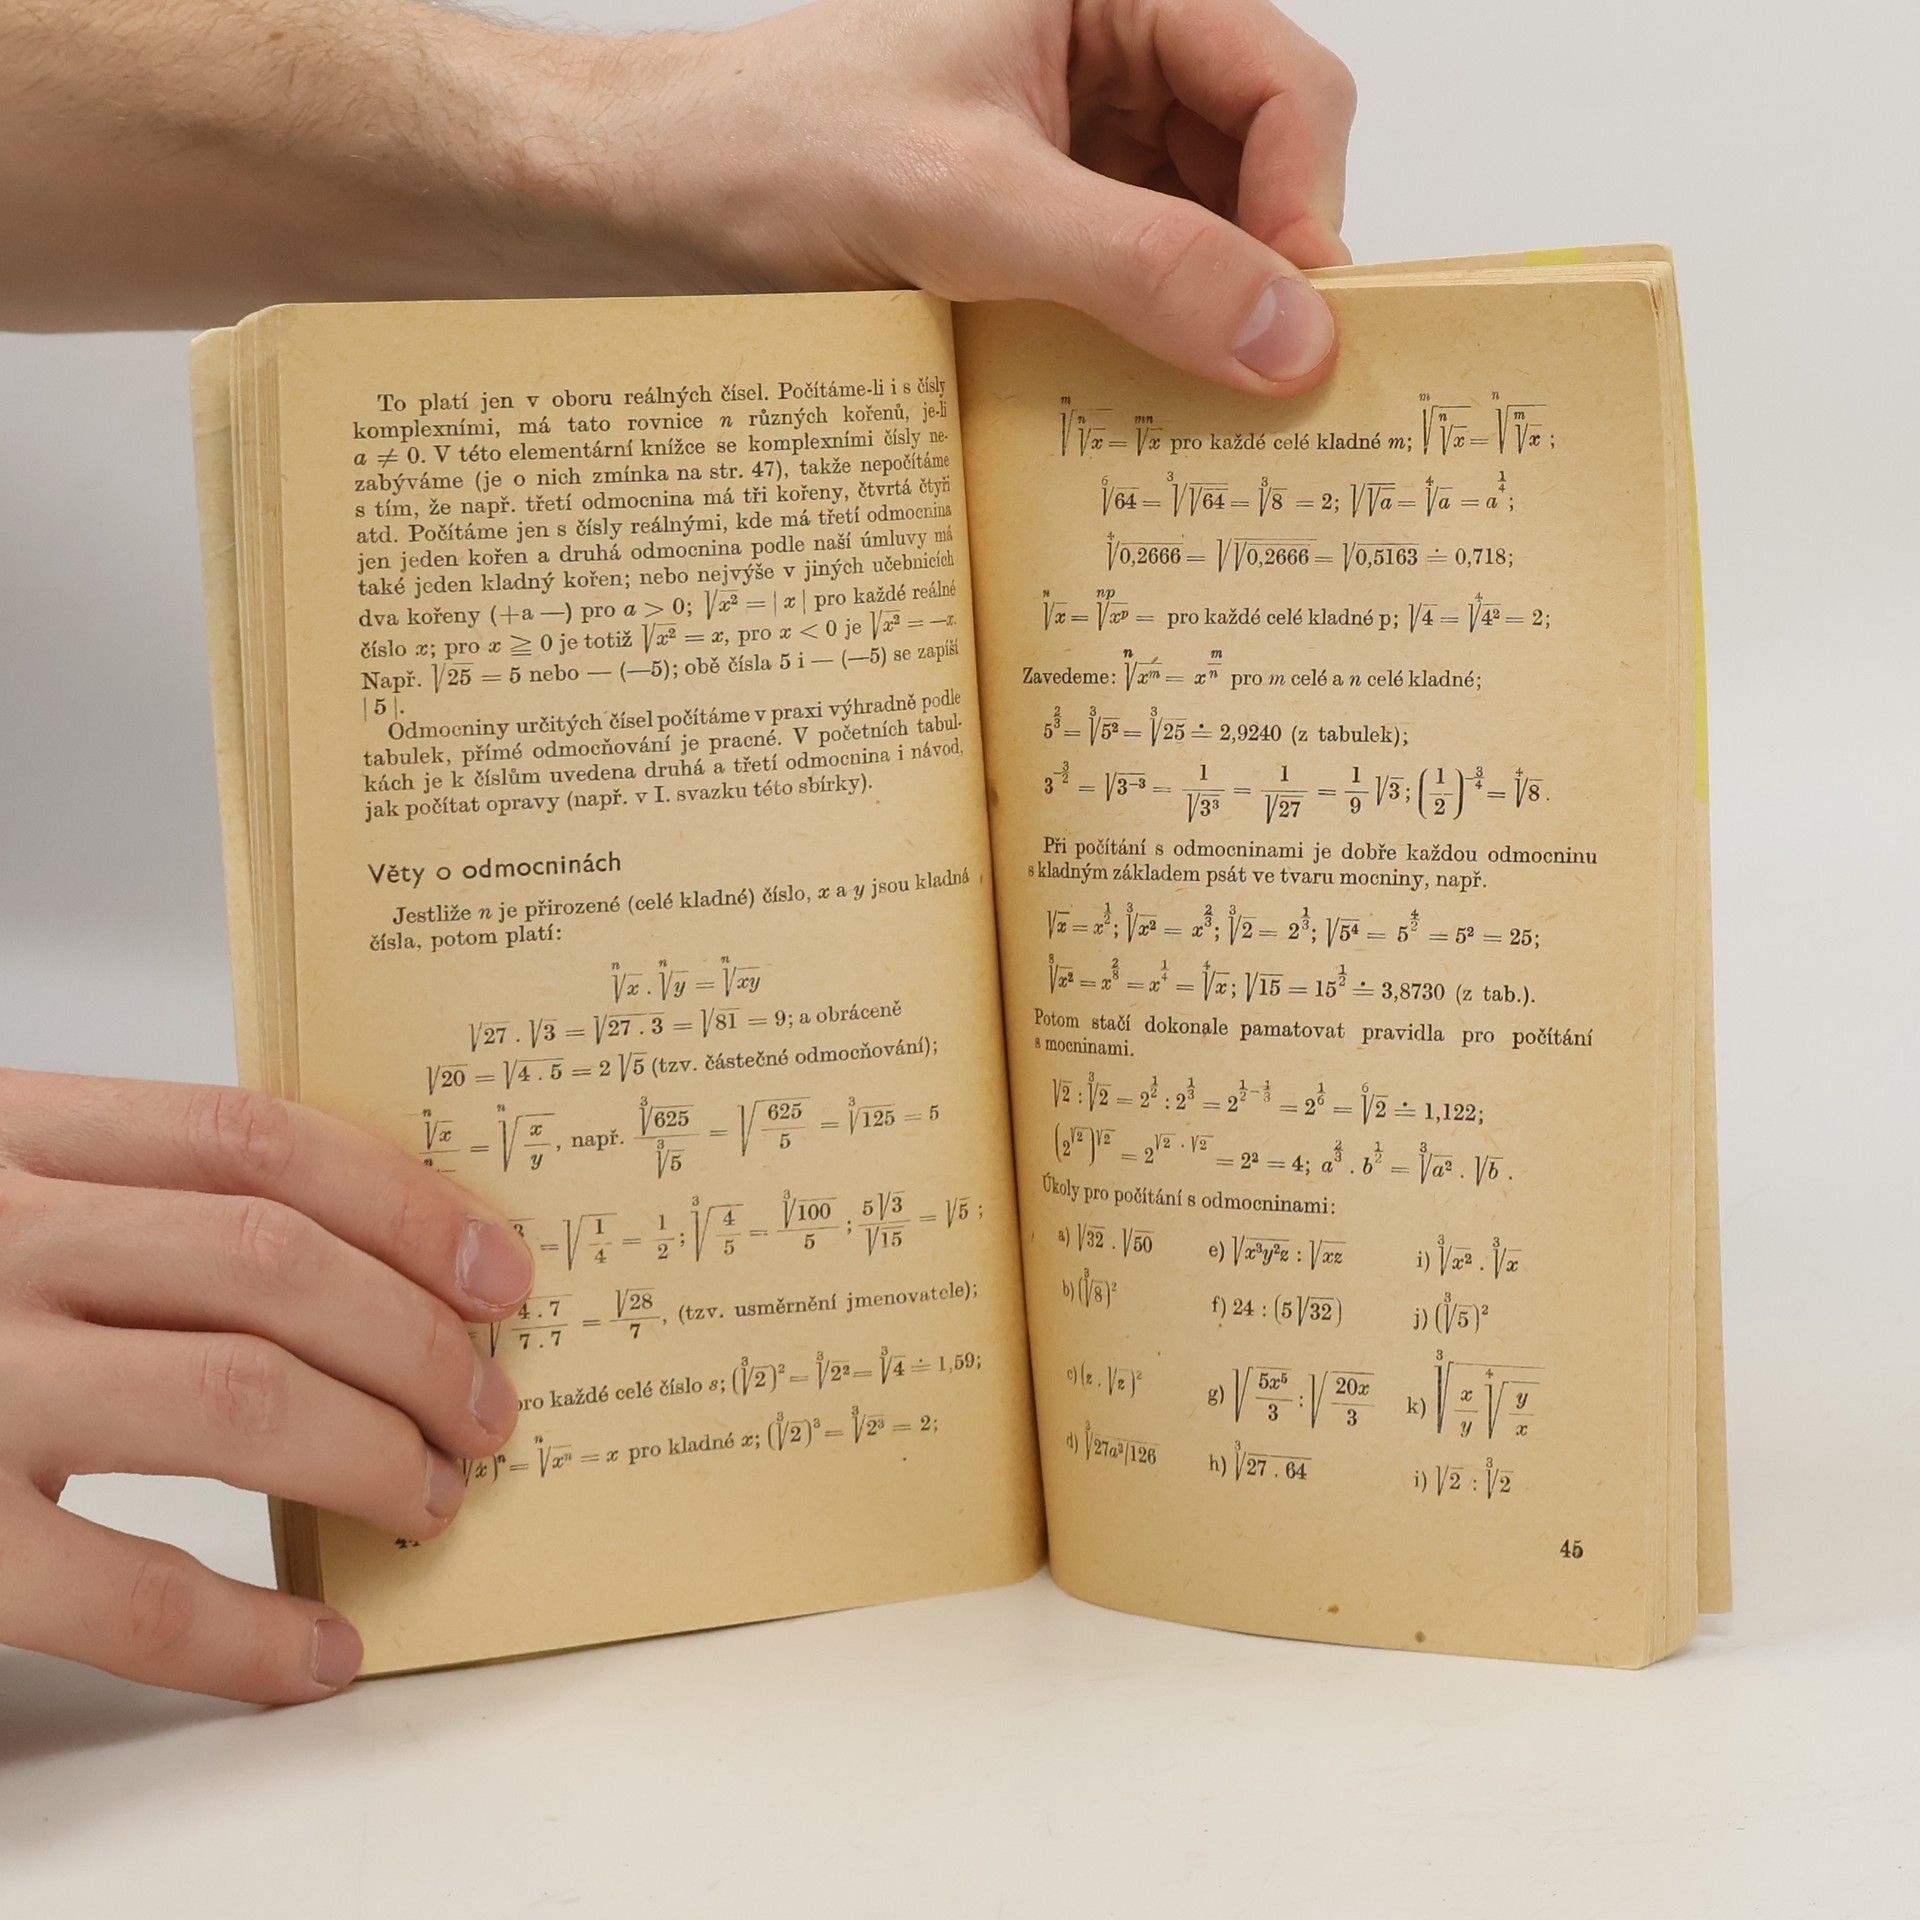 To platí jen v oboru reálných čísel. Počítáme-li i s čísly
komplexními, má tato rovnice n různých kořenů, je-li
a ≠ 0. V této elementární knížce se komplexními čísly ne-
zabýváme (je o nich zmínka na str. 47), takže nepočítáme
s tím, že např. třetí odmocnina má tři kořeny, čtvrtá čtyři
atd. Počítáme jen s čísly reálnými, kde má třetí odmocnina
jen jeden kořen a druhá odmocnina podle naší úmluvy má
také jeden kladný kořen; nebo nejvýše v jiných učebnicích
dva kořeny (+a —) pro a > 0; √x² = | x | pro každé reálné
číslo x; pro x ≧ 0 je totiž √x² = x, pro x < 0 je √x² = —x.
Např. √25 = 5 nebo — (—5); obě čísla 5 i — (—5) se zapíší
| 5 |.
Odmocniny určitých čísel počítáme v praxi výhradně podle
tabulek, přímé odmocňování je pracné. V početních tabul-
kách je k číslům uvedena druhá a třetí odmocnina i návod,
jak počítat opravy (např. v I. svazku této sbírky).
Věty o odmocninách
Jestliže n je přirozené (celé kladné) číslo, x a y jsou kladná
čísla, potom platí:
ⁿ√x . ⁿ√y = ⁿ√xy
√27 . √3 = √27 . 3 = √81 = 9; a obráceně
√20 = √4 . 5 = 2 √5 (tzv. částečné odmocňování);
ⁿ√x / ⁿ = ⁿ√(x/y), např. ³√625 / ³√5 = √(625/5) = ³√125 = 5
3 = √(1/4) = 1/2; ³√(4/5) = ³√100 / 5; 5√3 / √15 = √5 ;
= √(4 . 7 / 7 . 7) = √28 / 7, (tzv. usměrnění jmenovatele);
pro každé celé číslo s; (³√2)² = ³√2² = ³√4 ≐ 1,59;
√x)ⁿ = ⁿ√xⁿ = x pro kladné x; (³√2)³ = ³√2³ = 2;
ᵐ√ⁿ√x = ᵐⁿ√x pro každé celé kladné m; ᵐ√ⁿ√x = ⁿ√ᵐ√x ;
⁶√64 = ³√√64 = ³√8 = 2; √√a = ⁴√a = a^(1/4);
⁴√0,2666 = √√0,2666 = √0,5163 ≐ 0,718;
ⁿ√x = ⁿᵖ√xᵖ = pro každé celé kladné p; √4 = ⁴√4² = 2;
Zavedeme: ⁿ√xᵐ = x^(m/n) pro m celé a n celé kladné;
5^(2/3) = ³√5² = ³√25 ≐ 2,9240 (z tabulek);
3^(—3/2) = √3⁻³ = 1/√3³ = 1/√27 = 1/9 √3; (1/2)^(—3/4) = ⁴√8.
Při počítání s odmocninami je dobře každou odmocninu
s kladným základem psát ve tvaru mocniny, např.
√x = x^(1/2); ³√x² = x^(2/3); ³√2 = 2^(1/3); √5⁴ = 5^(4/2) = 5² = 25;
⁸√x² = x^(2/8) = x^(1/4) = ⁴√x; √15 = 15^(1/2) ≐ 3,8730 (z tab.).
Potom stačí dokonale pamatovat pravidla pro počítání
s mocninami.
√2 : ³√2 = 2^(1/2) : 2^(1/3) = 2^(1/2—1/3) = 2^(1/6) = ⁶√2 ≐ 1,122;
(2^√2)^√2 = 2^(√2 . √2) = 2² = 4; a^(2/3) . b^(1/2) = ³√a² . √b .
Úkoly pro počítání s odmocninami:
a) √32 . √50 e) √x³y²z : √xz i) ³√x² . ³√x
b) (³√8)² f) 24 : (5√32) j) (³√5)²
c) (z . √z)² g) √(5x⁵/3) : √(20x/3) k) ³√(x/y ⁴√(y/x))
d) ³√27a³/126 h) ³√27 . 64 i) √2 : ³√2
45